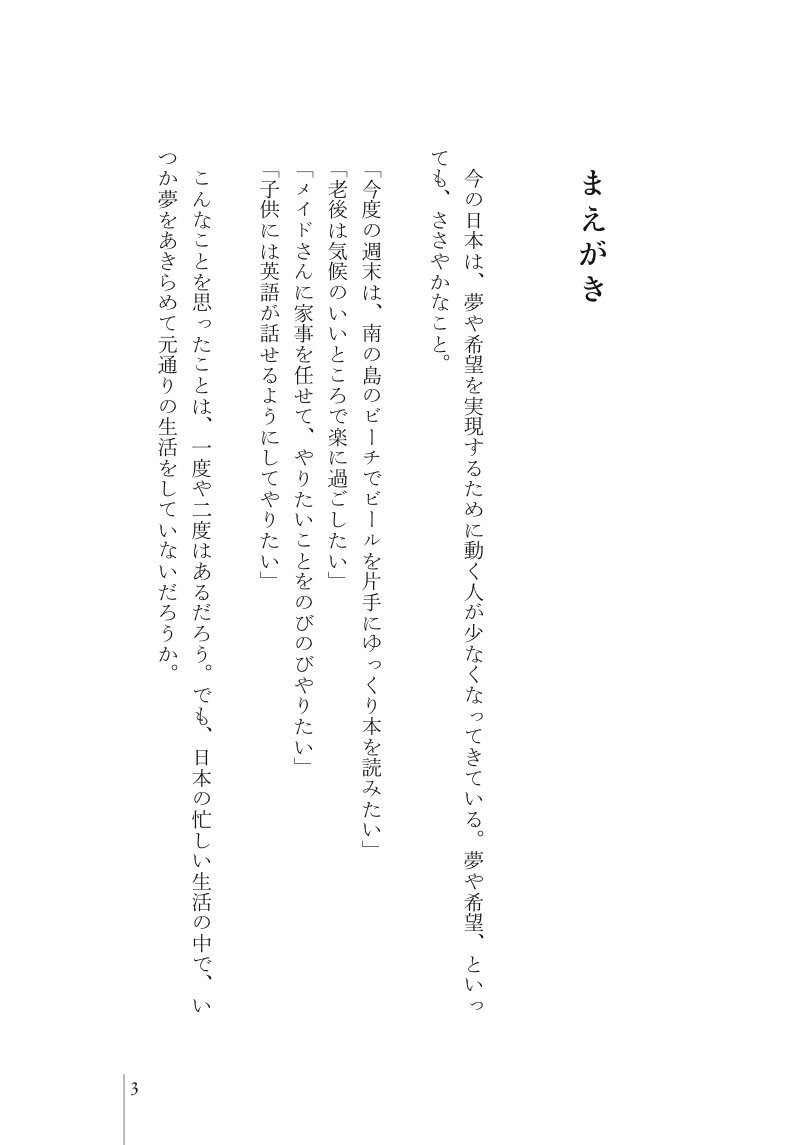 まえがき
今の日本は、夢や希望を実現するために動く人が少なくなってきている。夢や希望、といっ
ても、ささやかなこと。
「今度の週末は、南の島のビーチでビールを片手にゆっくり本を読みたい」
「老後は気候のいいところで楽に過ごしたい」
「メイドさんに家事を任せて、やりたいことをのびのびやりたい」
「子供には英語が話せるようにしてやりたい」
こんなことを思ったことは、一度や二度はあるだろう。でも、日本の忙しい生活の中で、い
つか夢をあきらめて元通りの生活をしていないだろうか。
3